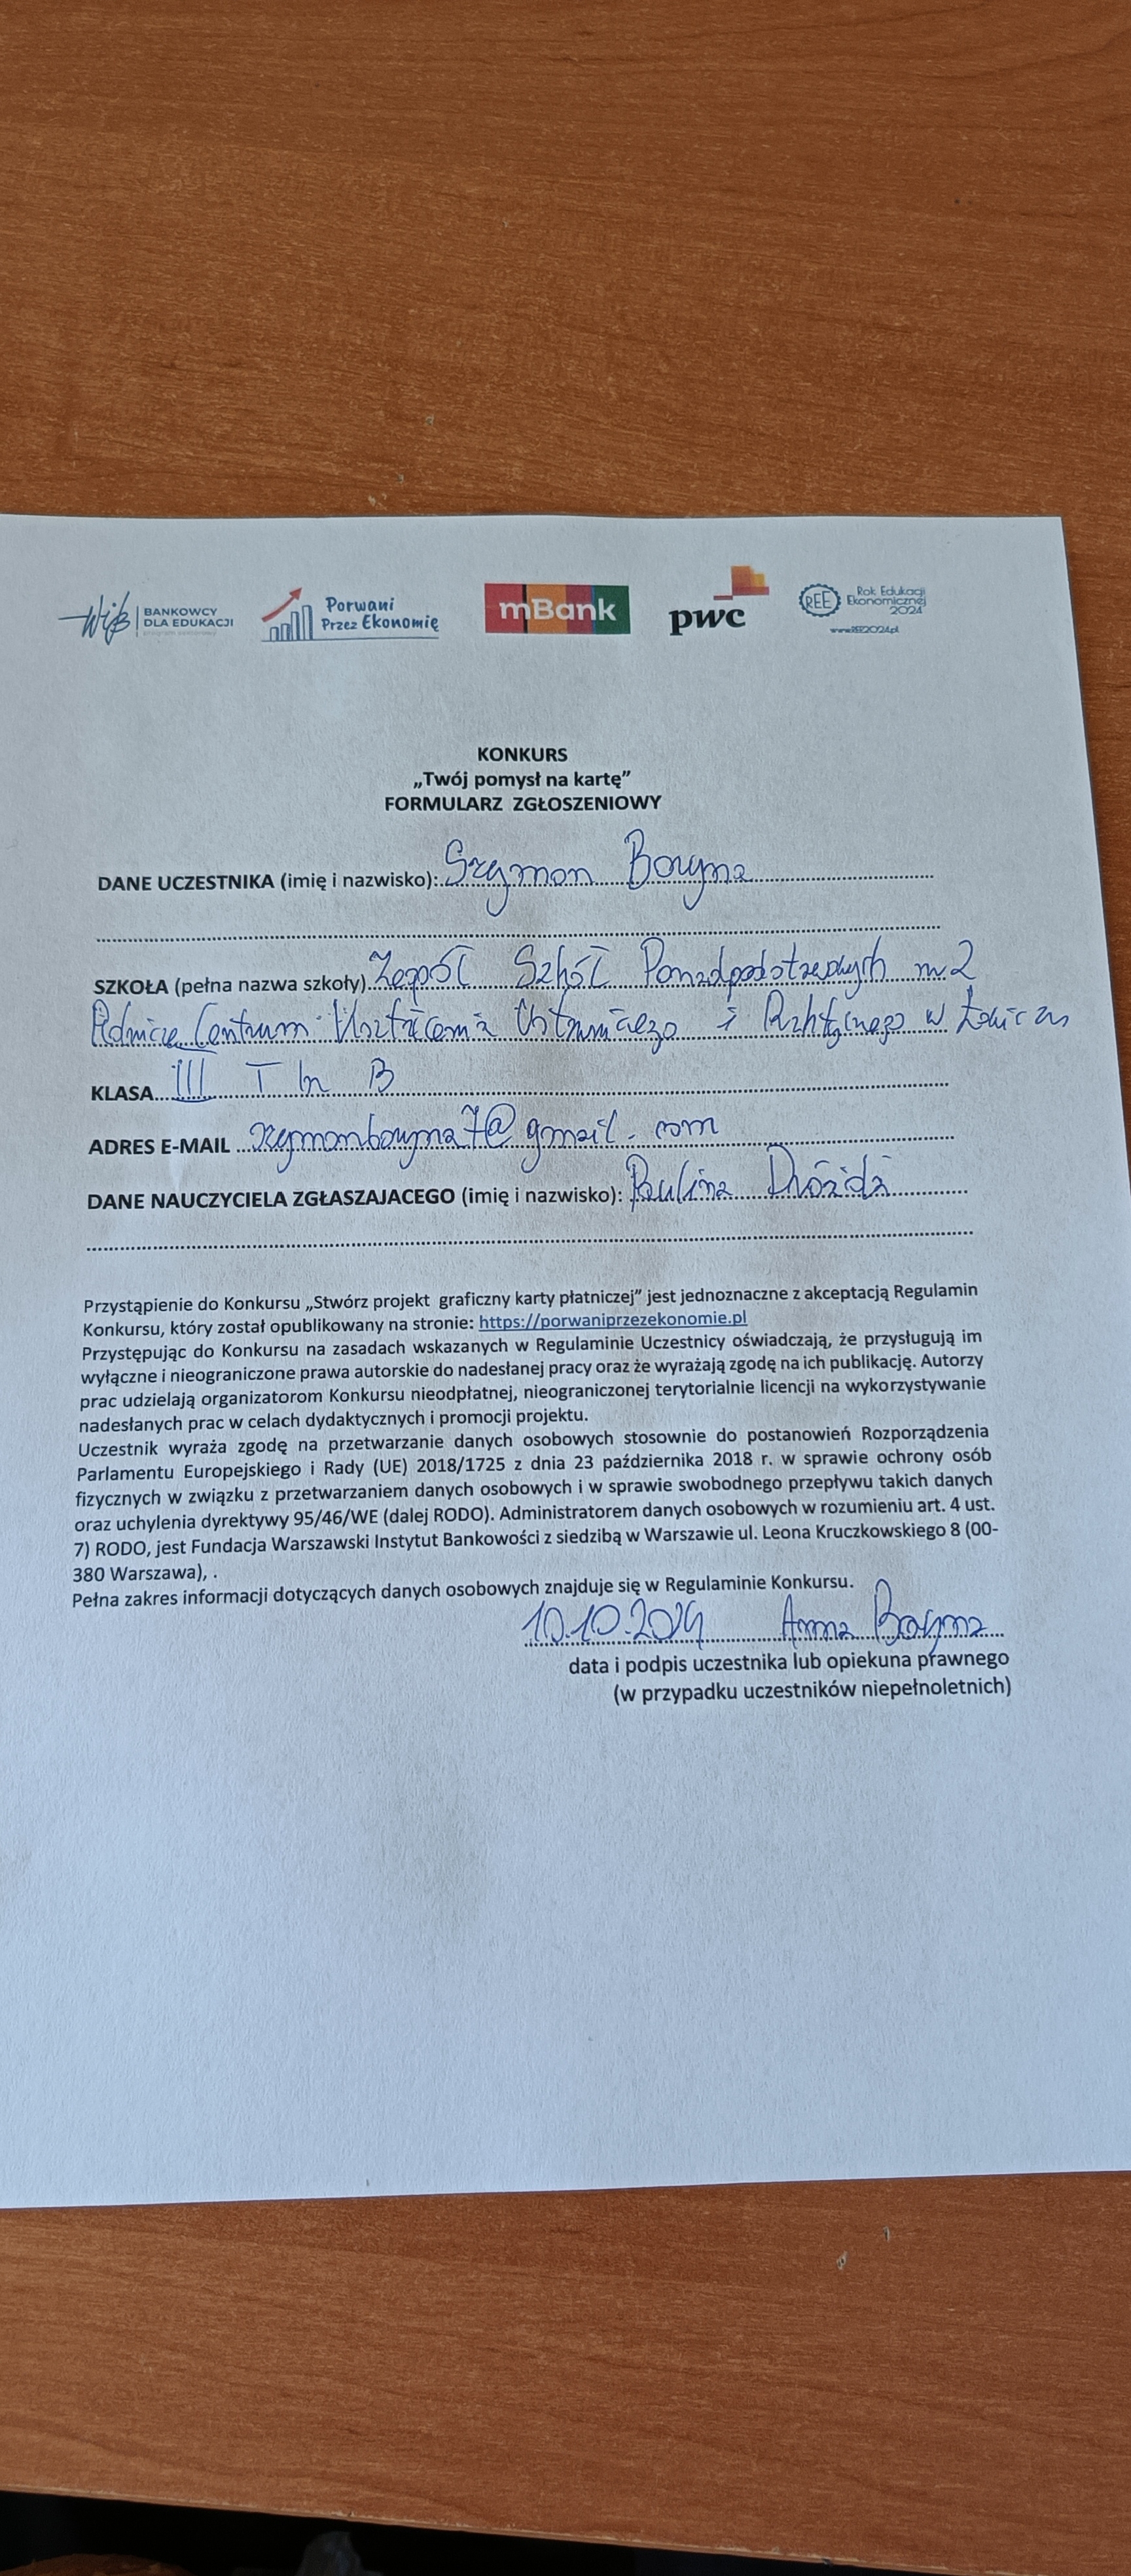 WiB BANKOWCY DLA EDUKACJI
Porwani Przez Ekonomię
mBank
pwc
REE Rok Edukacji Ekonomicznej 2024
www.REE2024.pl
KONKURS
„Twój pomysł na kartę”
FORMULARZ ZGŁOSZENIOWY
DANE UCZESTNIKA (imię i nazwisko): Szymon Boryna
SZKOŁA (pełna nazwa szkoły) Zespół Szkół Ponadpodstawowych nr 2
Centrum Kształcenia Ustawicznego i w Łowiczu
KLASA III T In B
ADRES E-MAIL szymonboryna7@gmail.com
DANE NAUCZYCIELA ZGŁASZAJACEGO (imię i nazwisko): Paulina Dróżdż
Przystąpienie do Konkursu „Stwórz projekt graficzny karty płatniczej” jest jednoznaczne z akceptacją Regulamin
Konkursu, który został opublikowany na stronie: https://porwaniprzezekonomie.pl
Przystępując do Konkursu na zasadach wskazanych w Regulaminie Uczestnicy oświadczają, że przysługują im
wyłączne i nieograniczone prawa autorskie do nadesłanej pracy oraz że wyrażają zgodę na ich publikację. Autorzy
prac udzielają organizatorom Konkursu nieodpłatnej, nieograniczonej terytorialnie licencji na wykorzystywanie
nadesłanych prac w celach dydaktycznych i promocji projektu.
Uczestnik wyraża zgodę na przetwarzanie danych osobowych stosownie do postanowień Rozporządzenia
Parlamentu Europejskiego i Rady (UE) 2018/1725 z dnia 23 października 2018 r. w sprawie ochrony osób
fizycznych w związku z przetwarzaniem danych osobowych i w sprawie swobodnego przepływu takich danych
oraz uchylenia dyrektywy 95/46/WE (dalej RODO). Administratorem danych osobowych w rozumieniu art. 4 ust.
7) RODO, jest Fundacja Warszawski Instytut Bankowości z siedzibą w Warszawie ul. Leona Kruczkowskiego 8 (00-
380 Warszawa), .
Pełna zakres informacji dotyczących danych osobowych znajduje się w Regulaminie Konkursu.
10.10.2024 Anna Boryna
data i podpis uczestnika lub opiekuna prawnego
(w przypadku uczestników niepełnoletnich)